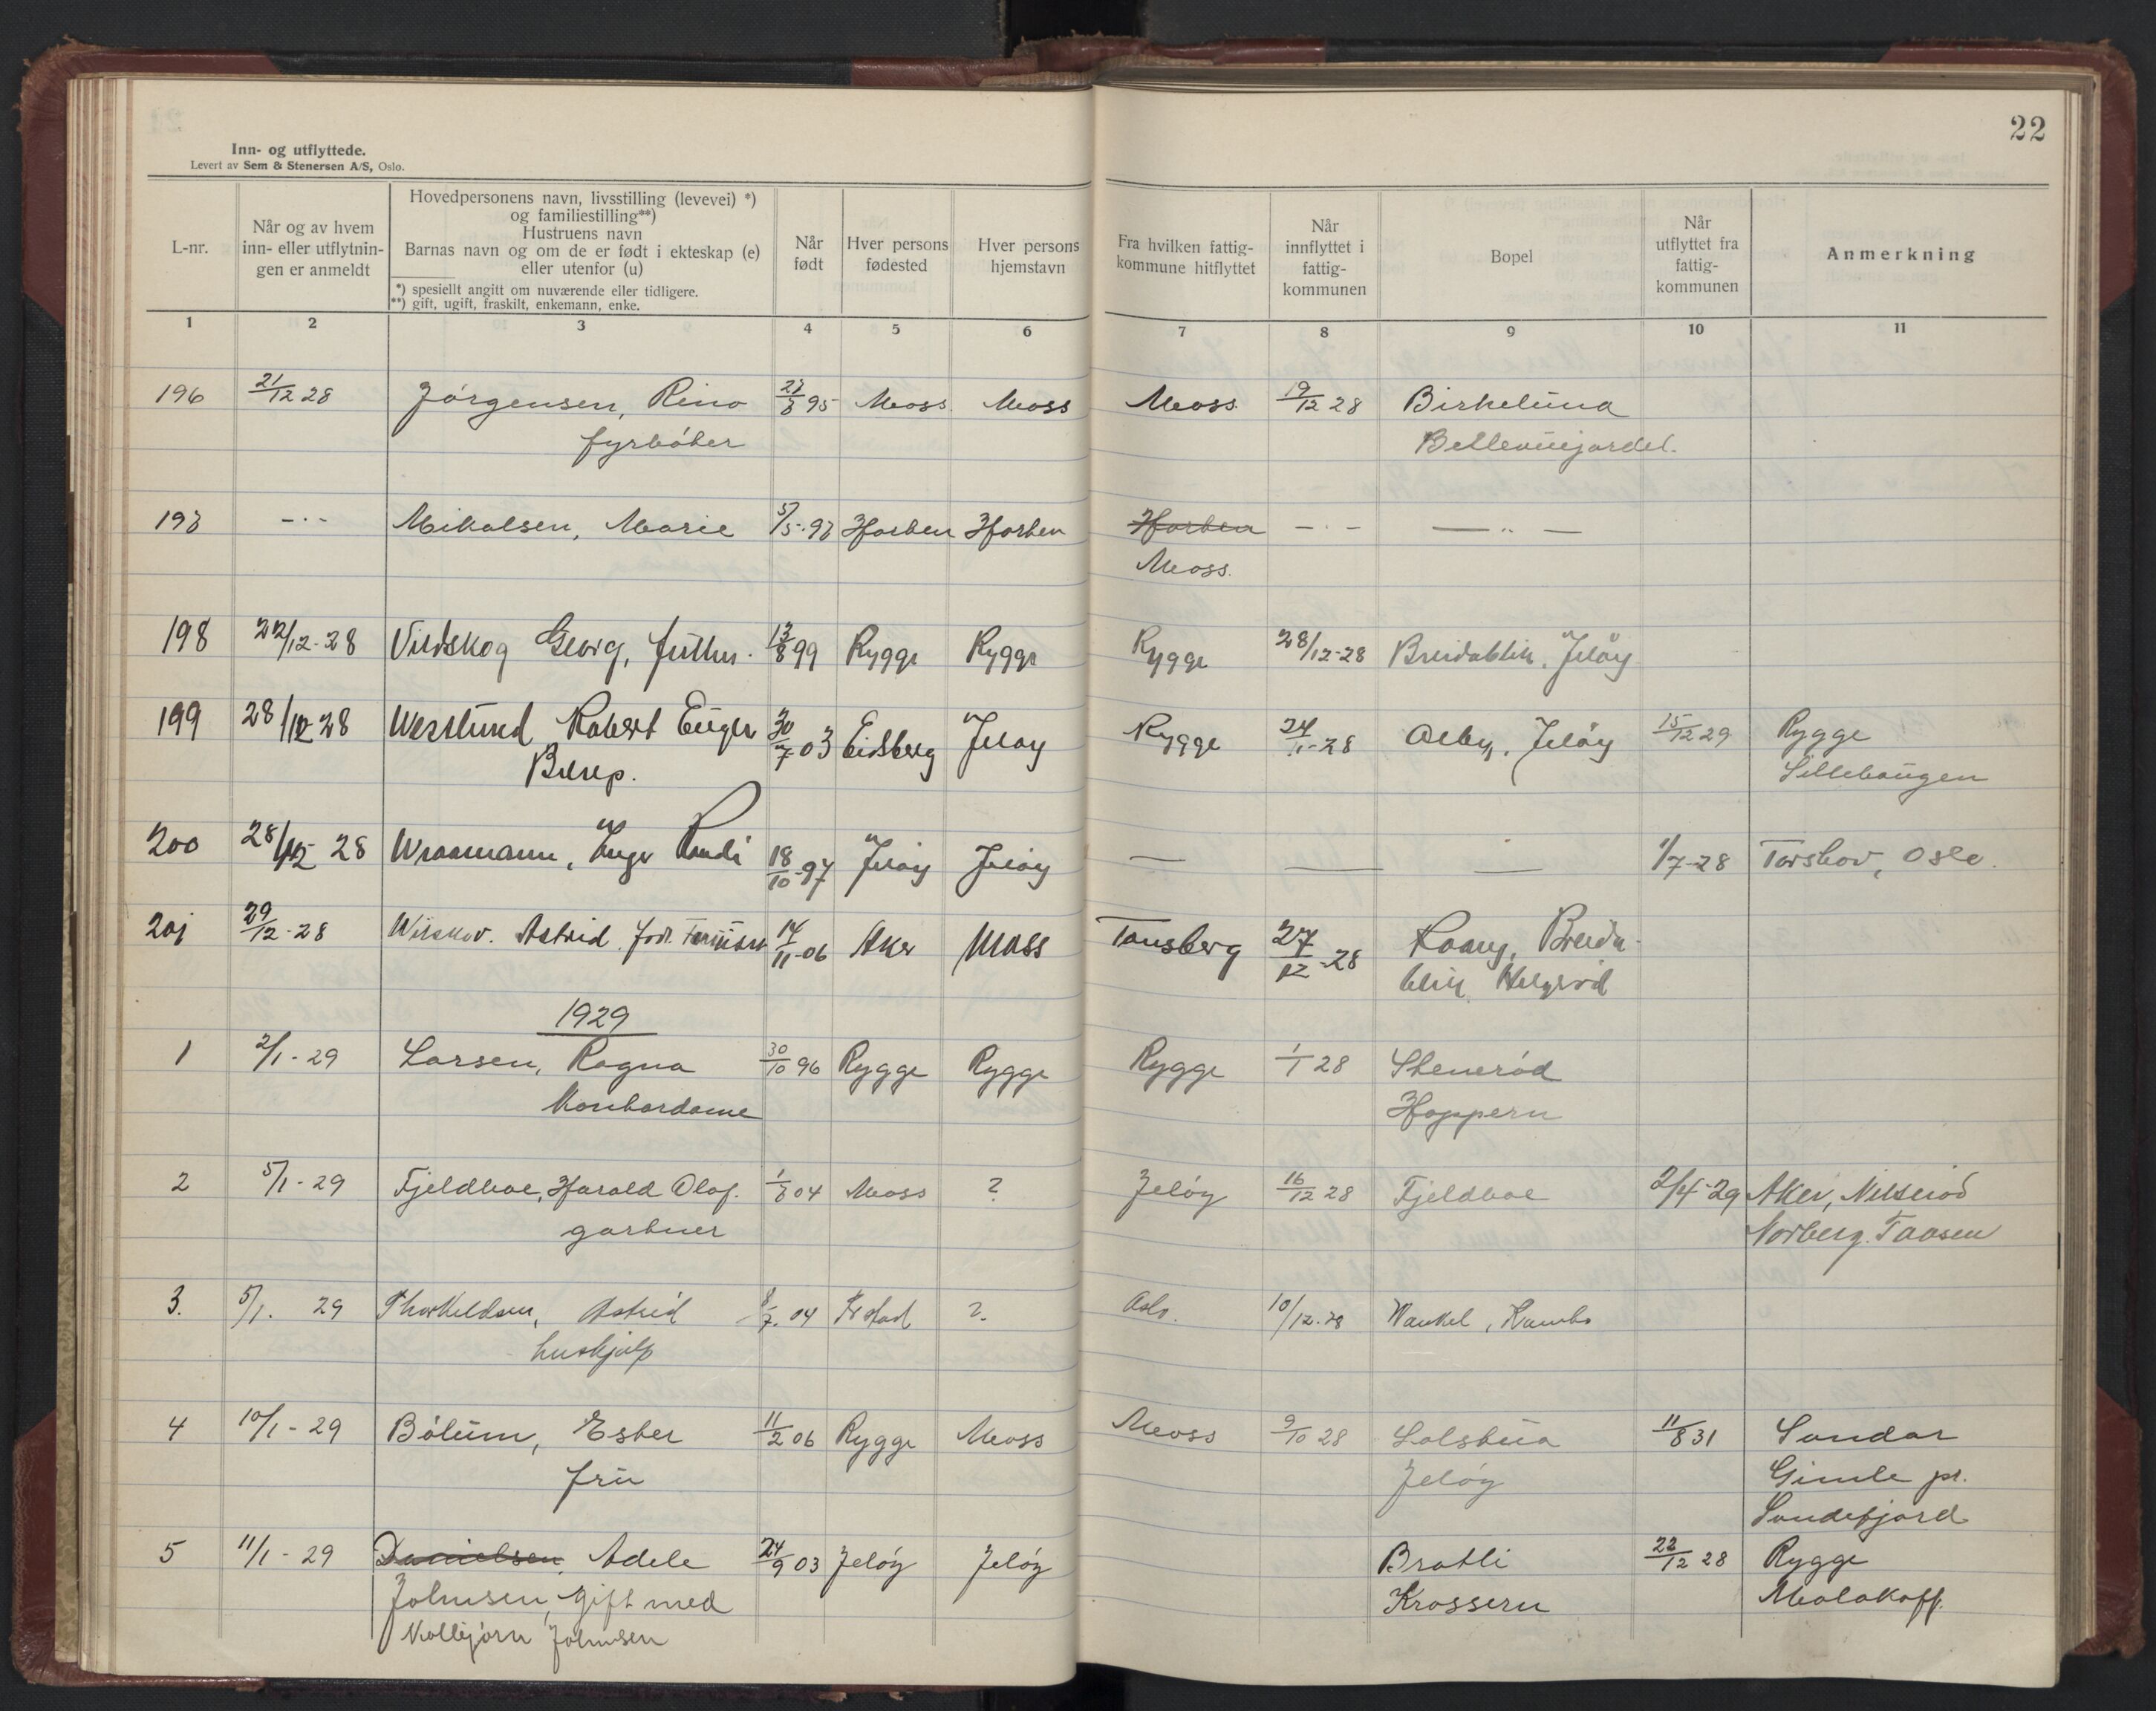 22
Inn- og utflyttede.
Levert av Sem & Stenersen A/S, Oslo.
L-nr.
Når og av hvem inn- eller utflytnin- gen er anmeldt
Hovedpersonens navn, livsstilling (levevei) *)
og familiestilling**)
Hustruens navn
Barnas navn og om de er født i ekteskap (e)
eller utenfor (u)
*) spesiellt angitt om nuværende eller tidligere.
**) gift, ugift, fraskilt, enkemann, enke.
Når født
Hver persons fødested
Hver persons hjemstavn
Fra hvilken fattig- kommune hitflyttet
Når innflyttet i fattig- kommunen
Bopel
Når utflyttet fra fattig- kommunen
Anmerkning
1 2 3 4 5 6 7 8 9 10 11
196 21/12 28 Jörgensen, Rino 95 Moss Moss Moss 19/12 28 Birkelund
fyrböter Bellevuejordet.
197 -"- Mikalsen, Marie Horten Horten Horten -"- -"-
Moss.
198 22/12-28 Georg, 99 Rygge Rygge Rygge 28/12-28 Breidablik, Jelöy
199 28/12 28 Westlund Robert 30/7 03 Eidsberg Jeløy Rygge 28 Jelöy 15/12 29 Rygge
Lillehaugen
200 28/12 28 Wraamann, Inger Randi 18/10 Jeløy Jeløy — — — 1/7-28 Torshov, Oslo.
201 29/12-28 Astrid 14/11-06 Aker Moss Tønsberg 27/12-28
1929
1 2/1-29 Larsen, Ragna 30/10 96 Rygge Rygge Rygge 1/1 28 Stenerød
Kontordame Hoppern
2 5/1-29 Fjeldboe, Harald Olaf. 04 Moss ? Jeløy 16/12 28 Fjeldboe 2/4-29 Aker,
gartner Norberg. Taasen
3. 5/1. 29 Thorkildsen, Astrid 04 ? Oslo. 10/12.28 Kambo
hushjelp
4 10/1-29 Bølum, Ester 11/2 06 Rygge Moss Moss 9/10 28 Solstua 11/8 31 Sandar
fru Jeløy Gimle pr.
Sandefjord
5 11/1-29 Danielsen, Adele 24/9 03 Jeløy Jeløy Bratli 22/12 28 Rygge
Johnsen, gift med Krossern Malakoff.
Kolbjørn Johnsen